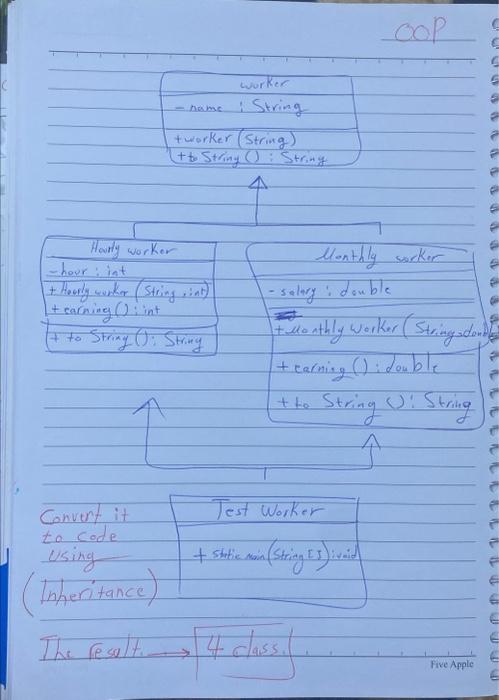 OOP
worker
- name : String
+ worker (String)
+ to String () : String
Hourly worker
- hour : int
+ Hourly worker (String, int)
+ earning () : int
+ to String () : String
Monthly worker
- salary : double
+ Monthly worker (String, double
+ earning () : double
+ to String () : String
Test Worker
+ static main (String [ ]) : void
Convert it
to code
using
(Inheritance)
The result → 4 class
Five Apple